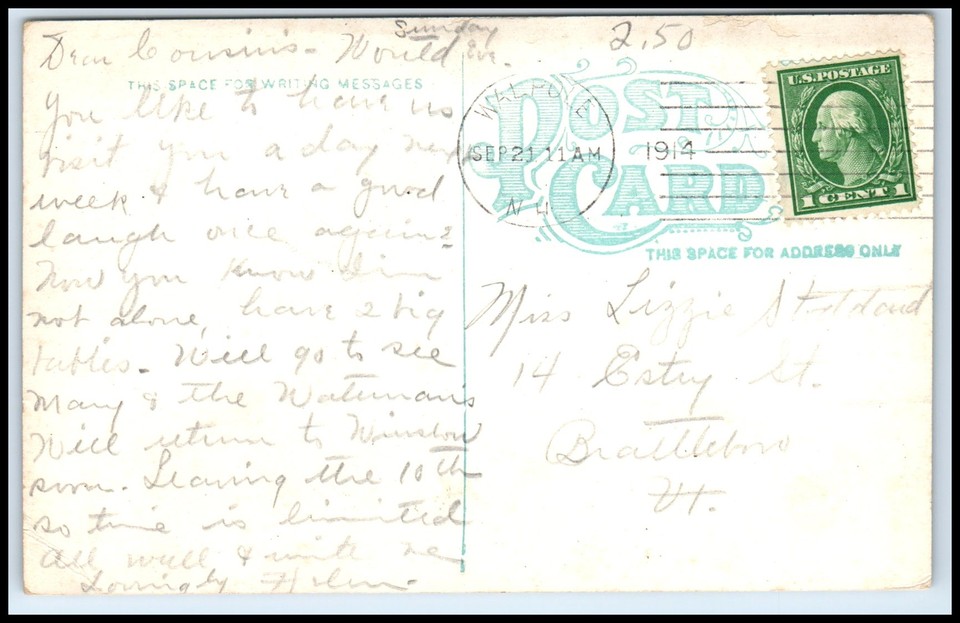 Sunday
Eve.
2.50
Dear Cousins - Would
THIS SPACE FOR WRITING MESSAGES
you like to have us
visit you a day next
week & have a good
laugh once again?
Now you know I'm
not alone, have 2 big
tables. Will go to see
Mary & the Waterman's
Will return to Winslow
soon. Leaving the 10th
so time is limited
All well & write me
Lovingly Helen
POST CARD
WALPOLE
SEP 21 11 AM
1914
N.H.
U.S. POSTAGE
1 CENT 1
THIS SPACE FOR ADDRESS ONLY
Miss Lizzie Stoddard
14 Estey St.
Brattleboro
Vt.